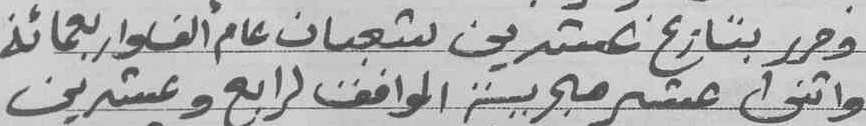 وحرر بتاريخ عشرين شعبان عام ألف واربعمائة
واثنى عشر هجرية الموافق لرابع وعشرين